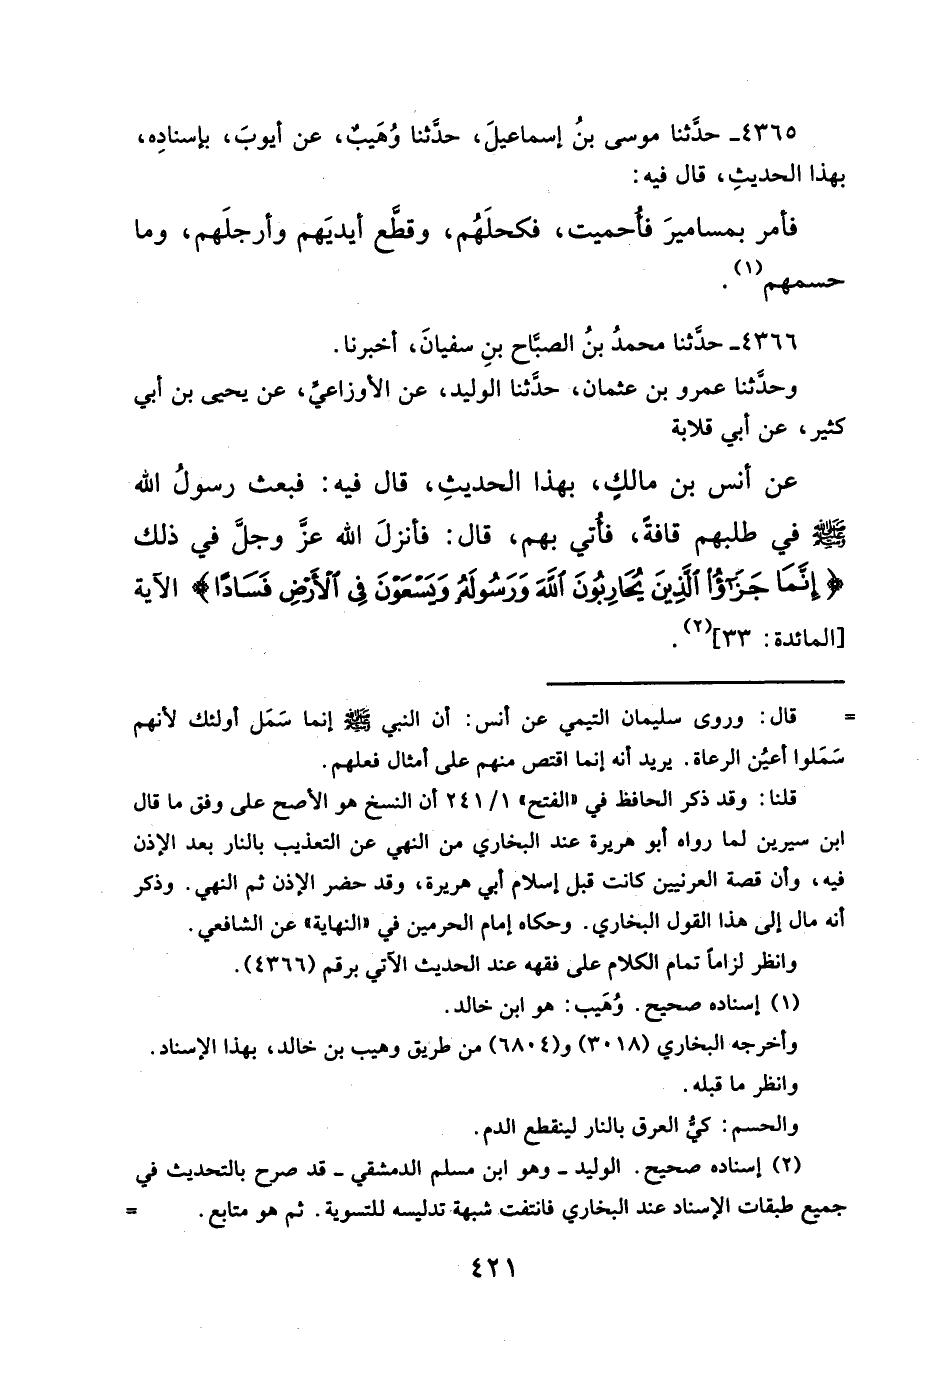 ٤٣٦٥ـ حدَّثنا موسى بنُ إسماعيلَ، حدَّثنا وُهَيبٌ، عن أيوبَ، بإسنادِه،
بهذا الحديثِ، قال فيه:
فأمر بمساميرَ فأُحميت، فكحلَهُم، وقطَّع أيديَهم وأرجلَهم، وما
حسمهم(١).
٤٣٦٦ـ حدَّثنا محمدُ بنُ الصبَّاح بنِ سفيانَ، أخبرنا.
وحدَّثنا عمرو بن عثمان، حدَّثنا الوليد، عن الأوزاعيِّ، عن يحيى بن أبي
كثير، عن أبي قلابة
عن أنس بن مالكٍ، بهذا الحديثِ، قال فيه: فبعث رسولُ الله
ﷺ في طلبهم قافةً، فأُتي بهم، قال: فأنزلَ الله عزَّ وجلَّ في ذلك
﴿إِنَّمَا جَزَٰٓؤُا۟ ٱلَّذِينَ يُحَارِبُونَ ٱللَّهَ وَرَسُولَهُۥ وَيَسْعَوْنَ فِى ٱلْأَرْضِ فَسَادًا﴾ الآية
[المائدة: ٣٣](٢).
= قال: وروى سليمان التيمي عن أنس: أن النبي ﷺ إنما سَمَل أولئك لأنهم
سَمَلوا أعيُن الرعاة. يريد أنه إنما اقتص منهم على أمثال فعلهم.
قلنا: وقد ذكر الحافظ في «الفتح» ١/ ٢٤١ أن النسخ هو الأصح على وفق ما قال
ابن سيرين لما رواه أبو هريرة عند البخاري من النهي عن التعذيب بالنار بعد الإذن
فيه، وأن قصة العرنيين كانت قبل إسلام أبي هريرة، وقد حضر الإذن ثم النهي. وذكر
أنه مال إلى هذا القول البخاري. وحكاه إمام الحرمين في «النهاية» عن الشافعي.
وانظر لزاماً تمام الكلام على فقهه عند الحديث الآتي برقم (٤٣٦٦).
(١) إسناده صحيح. وُهَيب: هو ابن خالد.
وأخرجه البخاري (٣٠١٨) و(٦٨٠٤) من طريق وهيب بن خالد، بهذا الإسناد.
وانظر ما قبله.
والحسم: كيُّ العرق بالنار لينقطع الدم.
(٢) إسناده صحيح. الوليد ـ وهو ابن مسلم الدمشقي ـ قد صرح بالتحديث في
جميع طبقات الإسناد عند البخاري فانتفت شبهة تدليسه للتسوية. ثم هو متابع. =
٤٢١